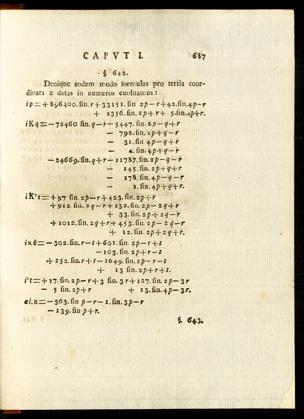 CAPVT I. 687
§ 642.
Denique eodem modo formulas pro tertia coor-
dinata z datas in numeros euoluamus:
ip=+896400.sin.r+33151.sin 2p-r+42.sin.4p-r
+ 1356.sin.2p+r+ 5.sin.4p+r.
iKq=-72460 sin.q-r-5447.sin 2p-q+r
- 798.sin.2p+q-r
- 31.sin 4p-q+r
- 4.sin 4p+q-r
-24669.sin.q+r-11787.sin 2p-q-r
- 145.sin.2p+q+r
- 178.sin.4p-q-r
- 1.sin.4p+q+r.
+97 sin.2p-r+423.sin.2p+r
+912.sin.2q-r+132.sin.2p-2q+r
+ 33.sin 2p+2q-r
+1012.sin.2q+r+453.sin.2p-2q-r
+ 12.sin 2p+2q+r.
-302.sin.r-t+601.sin.2p-r+t
-103.sin.2p+r-t
+252.sin.r+t-1649.sin.2p-r-t
+ 13 sin.2p+r+t.
+17.sin.2p-r+3 sin.3r+127.sin.2p-3r
- 5 sin.2p+r + 13.sin.4p-3r.
-363.sin p-r-1.sin.3p-r
-139.sin p+r.
§. 643.